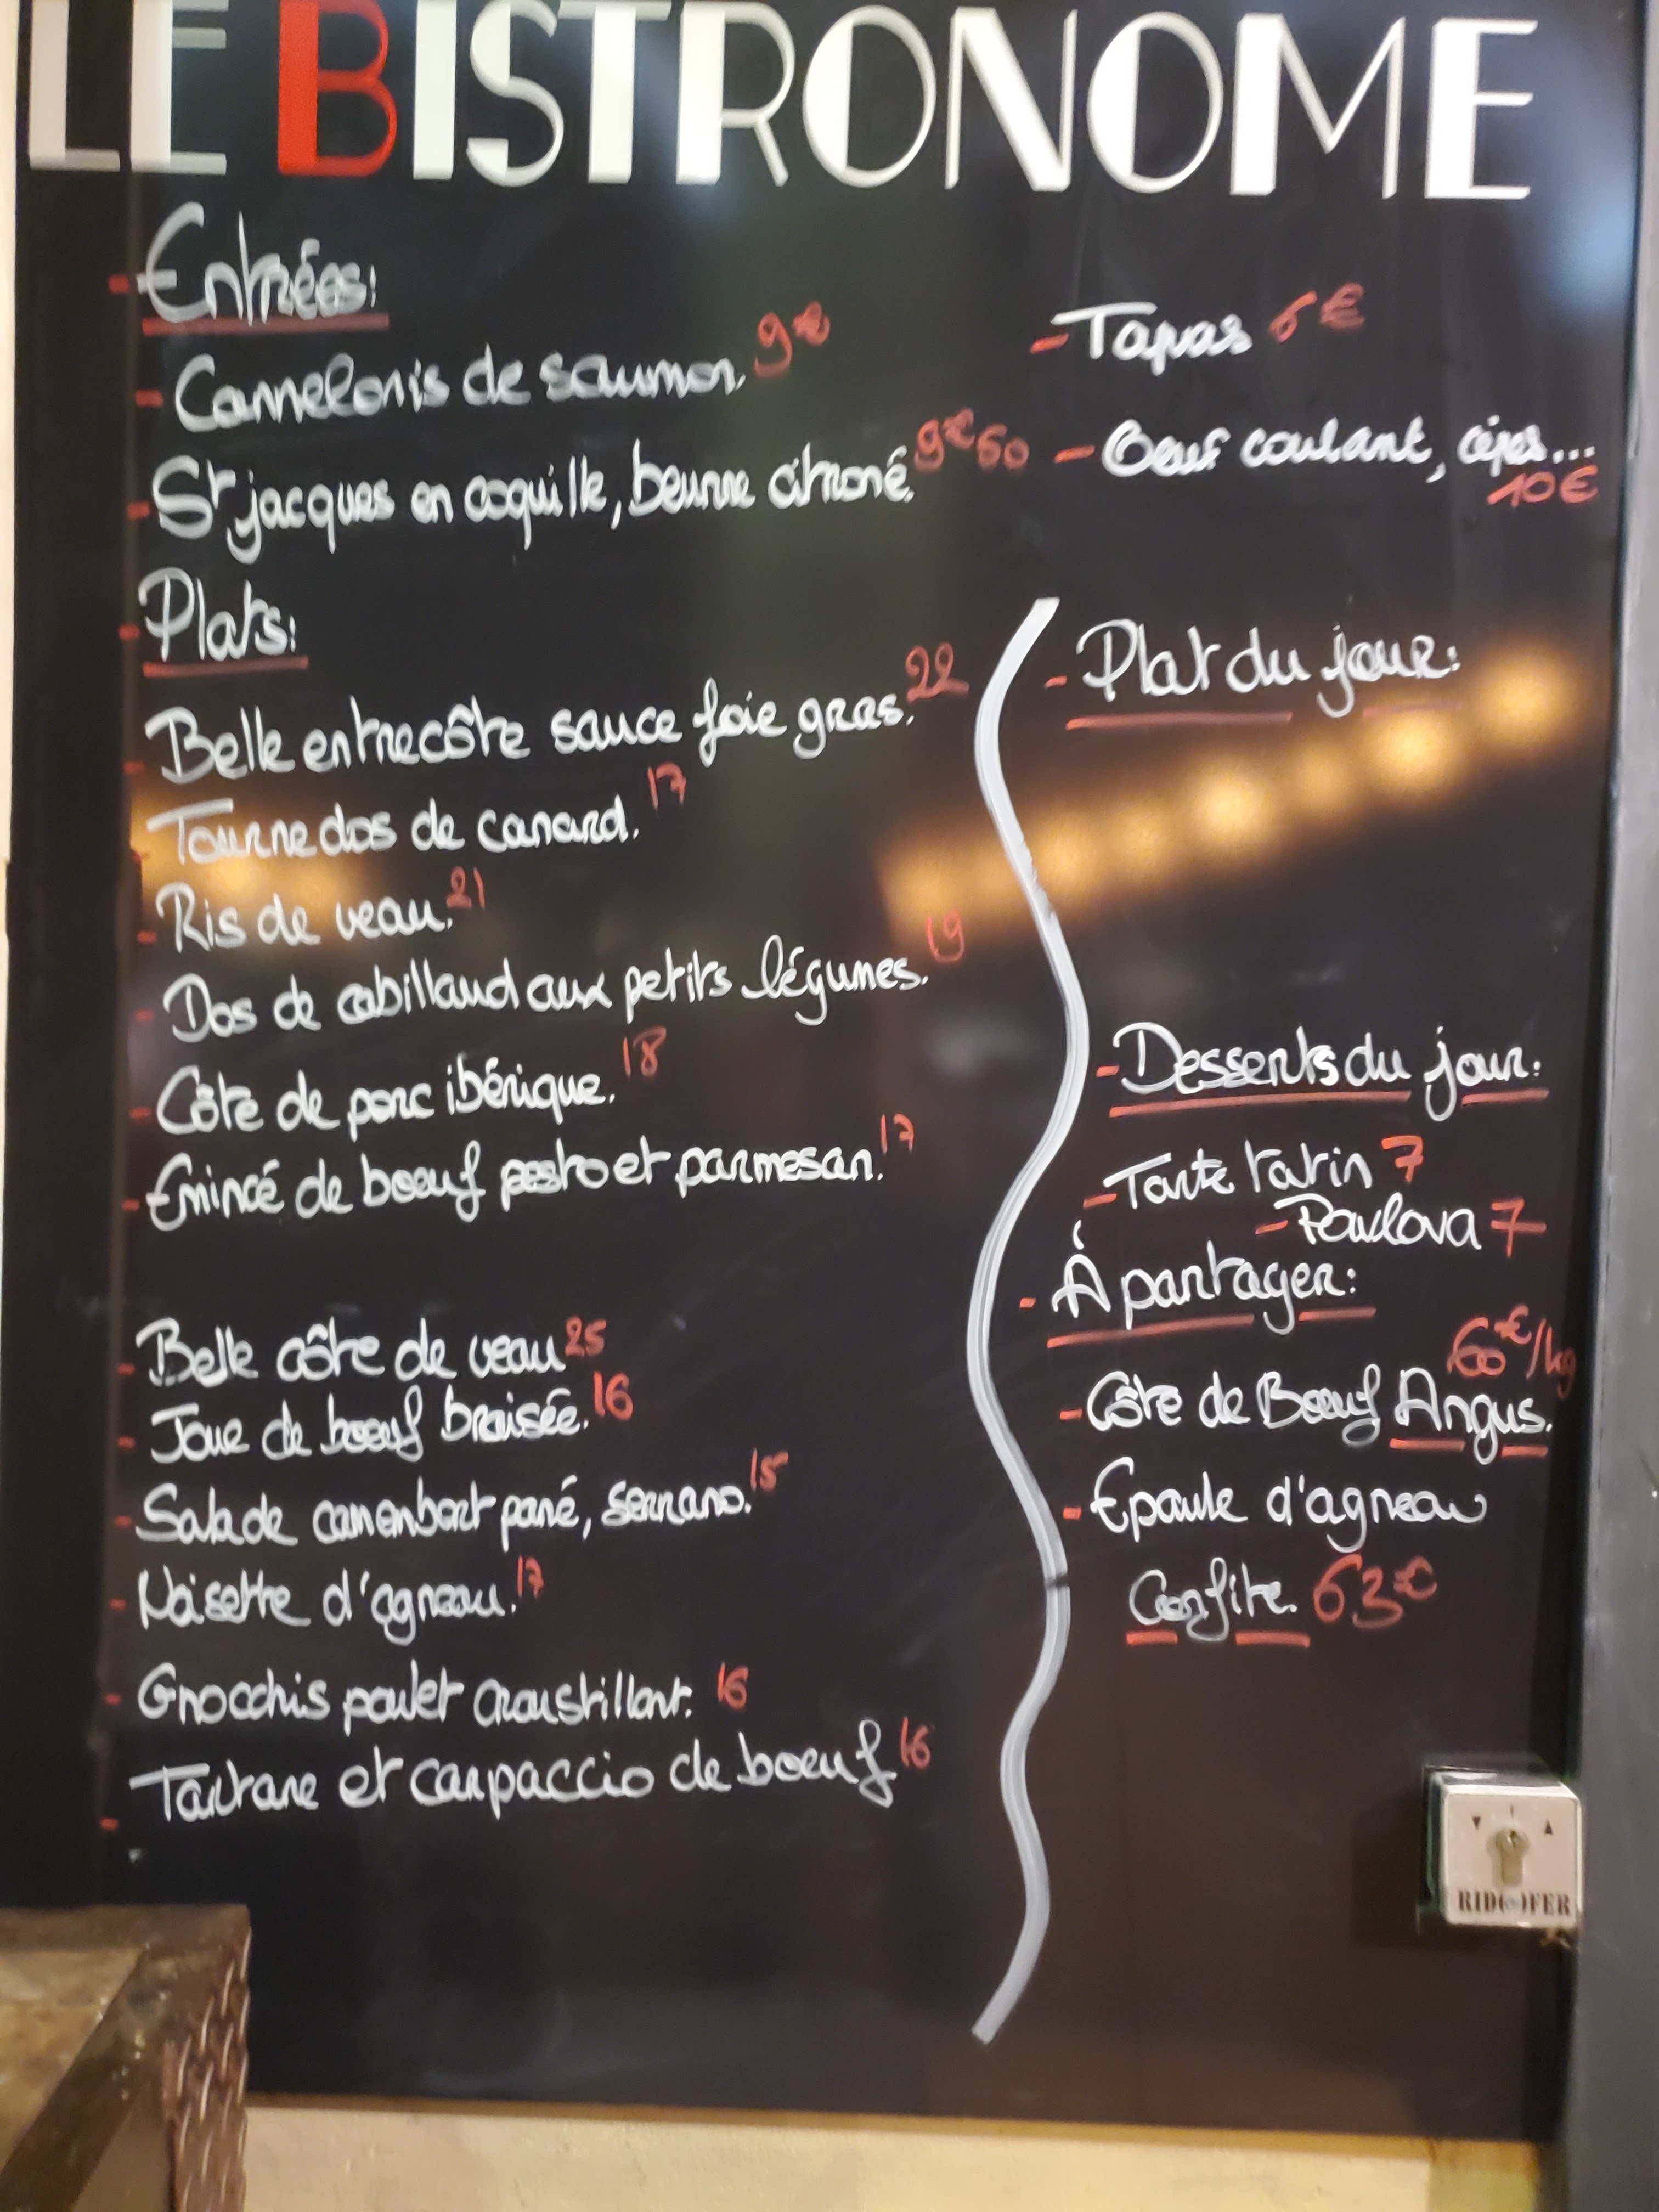 LE BISTRONOME
- Entrées:
- Cannelonis de saumon. 9€
- St jacques en coquille, beurre citronné. 9€50
- Tapas 6€
- Oeuf coulant, cèpes...
10€
- Plats:
- Belle entrecôte sauce foie gras. 22
- Tournedos de canard. 17
- Ris de veau. 21
- Dos de cabillaud aux petits légumes. 19
- Côte de porc ibérique. 18
- Émincé de boeuf pesto et parmesan. 17
- Belle côte de veau 25
- Joue de boeuf braisée. 16
- Salade camembert pané, serrano. 15
- Noisette d'agneau. 17
- Gnocchis poulet croustillant. 16
- Tartare et carpaccio de boeuf 16
- Plat du jour:
- Desserts du jour:
- Tarte tatin 7
- Pavlova 7
- À partager:
60€/kg
- Côte de Boeuf Angus.
- Epaule d'agneau
Confite. 63€
RIDOFER